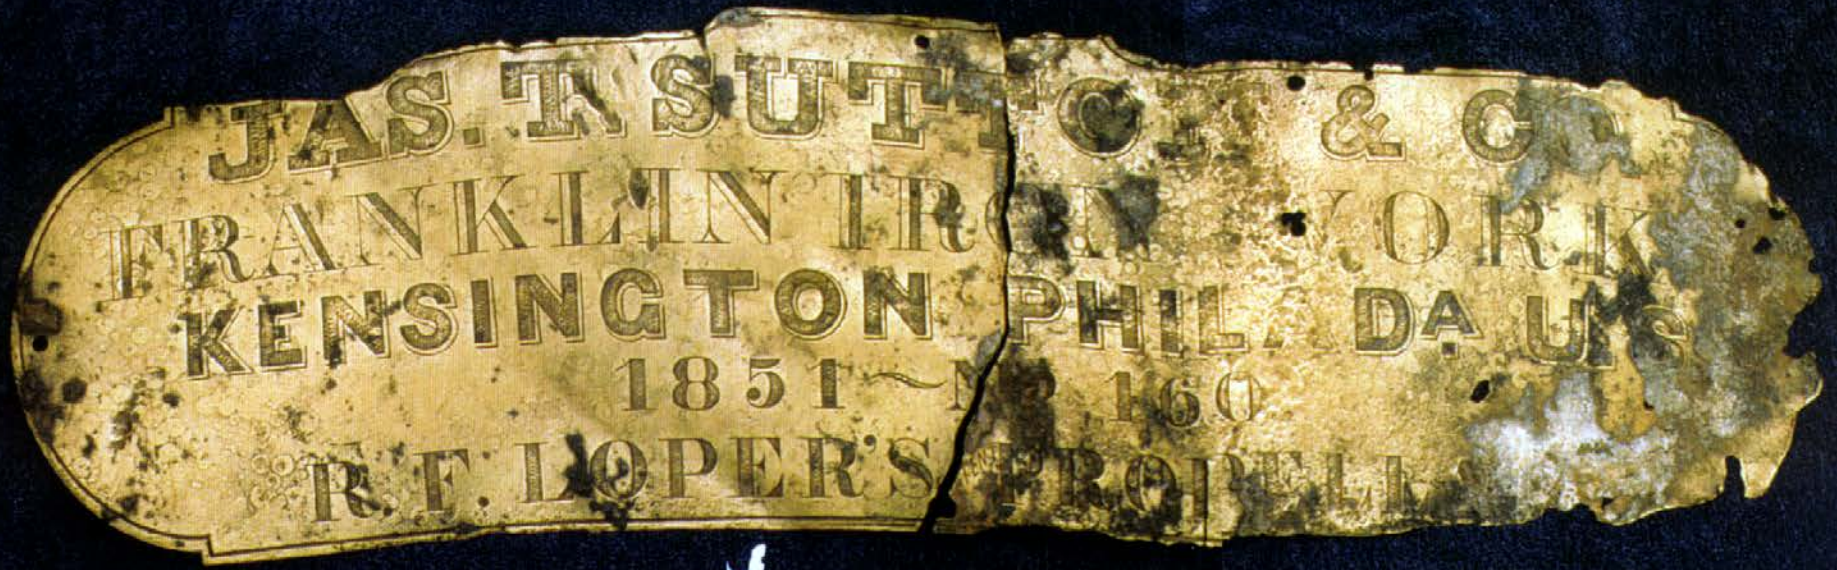 JAS. T. SUTTO & CO
FRANKLIN IRON WORK
KENSINGTON PHILADA U.S
1851 ~ No 160
R. F. LOPER'S PROPELL